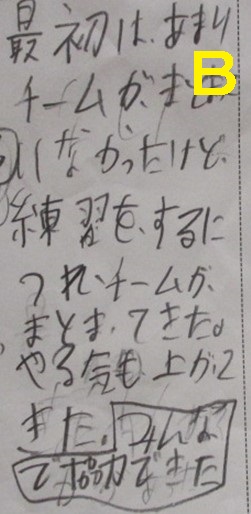 最初は、あまり
チームが、まとま
B
りなかったけど、
練習を、するに
つれ、チームが、
まとま、てきた。
やる気も上がって
きた。みんな
で協力できた